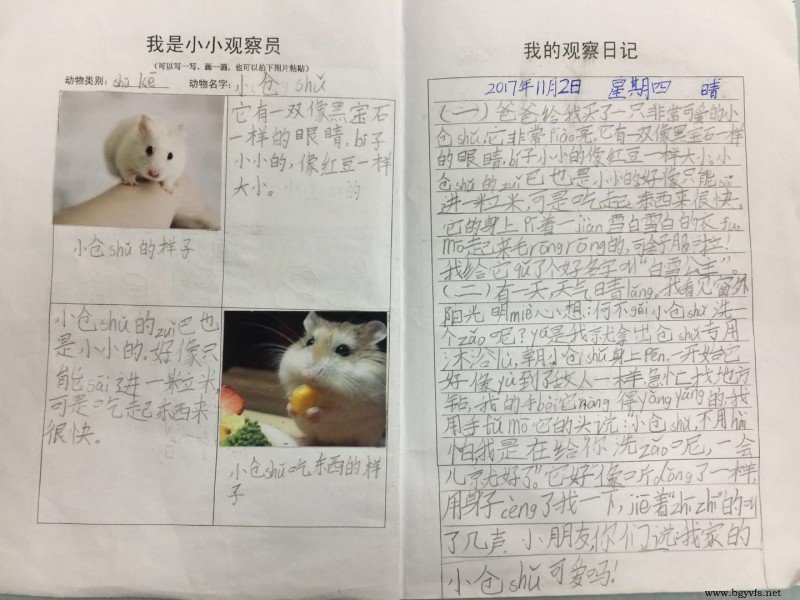 我是小小观察员
(可以写一写、画一画，也可以拍下图片粘贴)
动物类别: shǔ kē 动物名字: 小仓 shǔ
它有一双像黑宝石
一样的眼睛，bí子
小小的，像红豆一样
大小。
小仓shǔ的样子
小仓shǔ的zuǐ巴也
是小小的。好像只
能sāi进一米立米
可是吃起东西来
很快。
小仓shǔ吃东西的样
子
我的观察日记
2017年11月2日 星期四 晴
(一)爸爸给我买了一只非常可爱的小
仓shǔ,它非常piào亮,它有一双像黑宝石一样
的眼睛,bí子小小的像红豆一样大小,小
仓shǔ的zuǐ巴也是小小的好像只能sāi
进一米立米,可是吃起东西来很快。
它的身上
雪白雪白的衣fu
mō起来毛róngróng的,可舒服啦!
我给它取了个好名字叫"白雪公主"。
(二)有一天,天气晴lǎng,我看见窗外
阳光明mèi心想:何不gěi小仓shǔ洗
个zǎo呢?于是我就拿出仓shǔ专用
沐浴lù,朝小仓shǔ身上pēn,一开始它
好像yù到了敌人一样,急忙找地方
钻,我的手bèi它nòng得yǎngyǎng的,我
用手fǔmō它的头说:"小仓shǔ,不用hài
怕我是在给你洗zǎo呢,一会
儿就好了"。它好像听dǒng了一样,
用身子cèng了我一下,jiē着"zhīzhī"的叫
了几声。小朋友,你们说我家的
小仓shǔ可爱吗!
www.bgyvfs.net